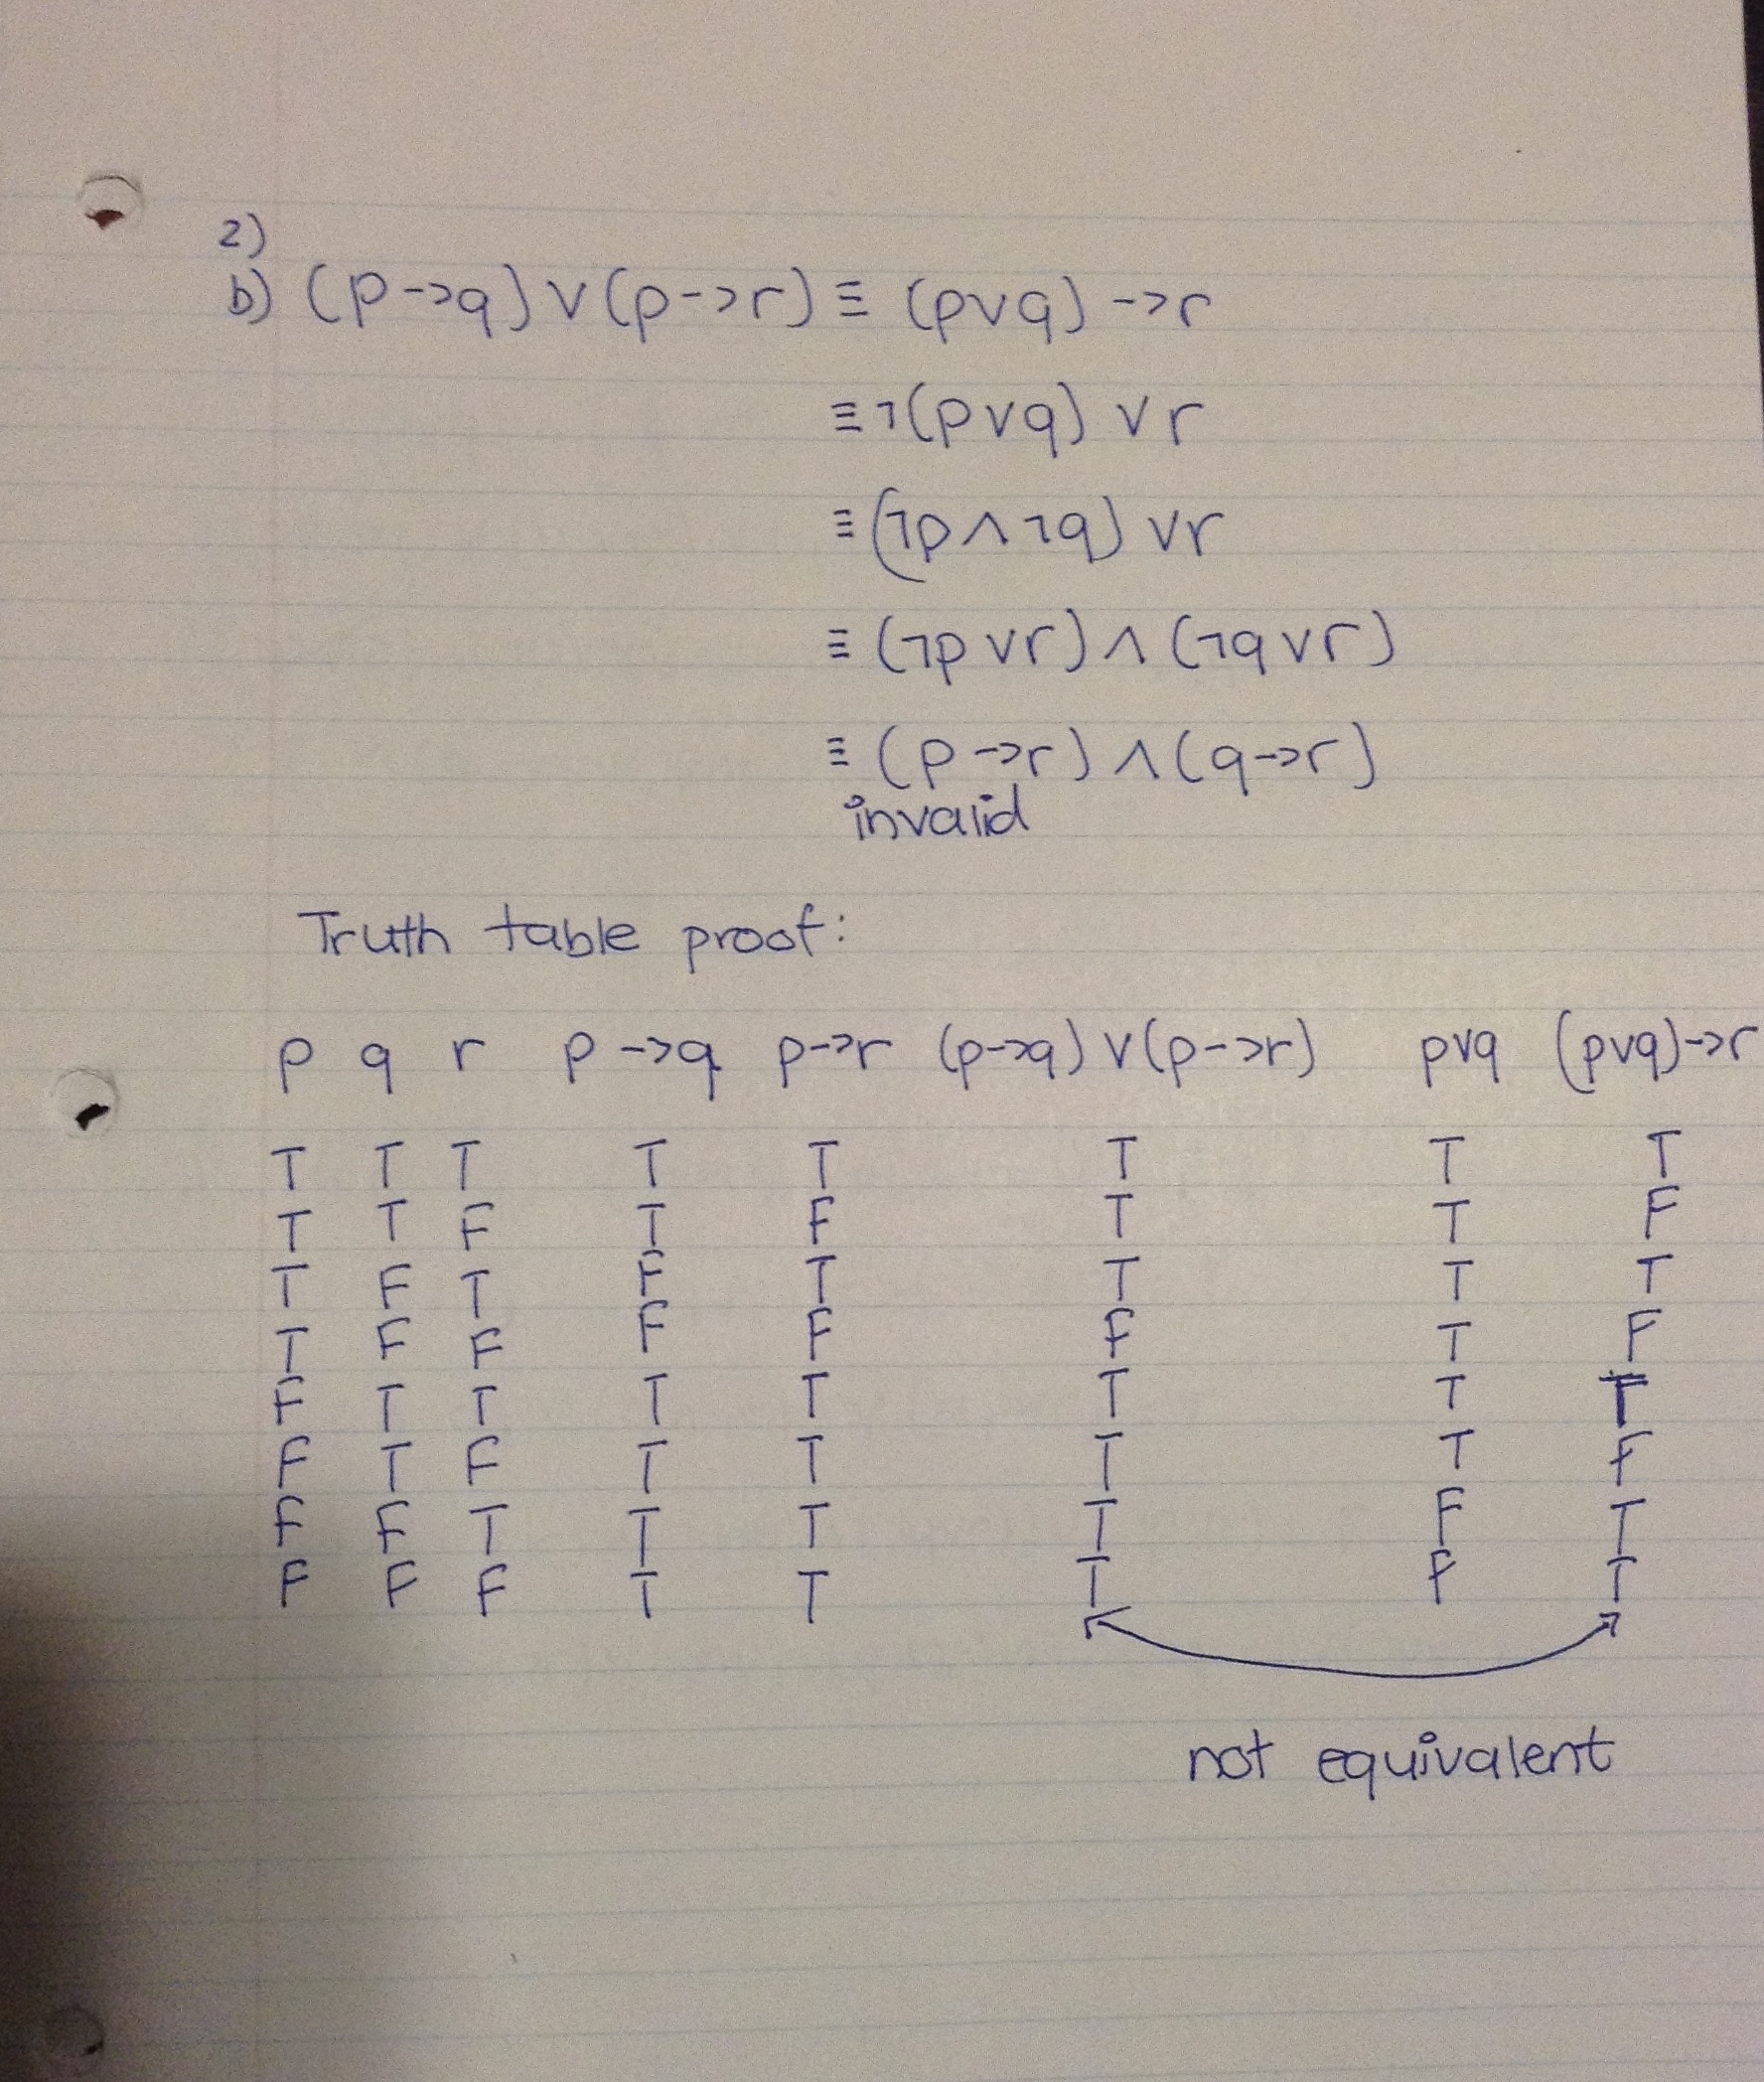 2)
b) (p->q) ∨ (p->r) ≡ (p∨q) ->r
≡ ¬(p∨q) ∨ r
≡ (¬p ∧ ¬q) ∨ r
≡ (¬p ∨ r) ∧ (¬q ∨ r)
≡ (p ->r) ∧ (q->r)
invalid
Truth table proof:
p q r p ->q p->r (p->q) ∨ (p->r) p∨q (p∨q)->r
T T T T T T T T
T T F T F T T F
T F T F T T T T
T F F F F F T F
F T T T T T T T
F T F T T T T F
F F T T T T F T
F F F T T T F T
not equivalent